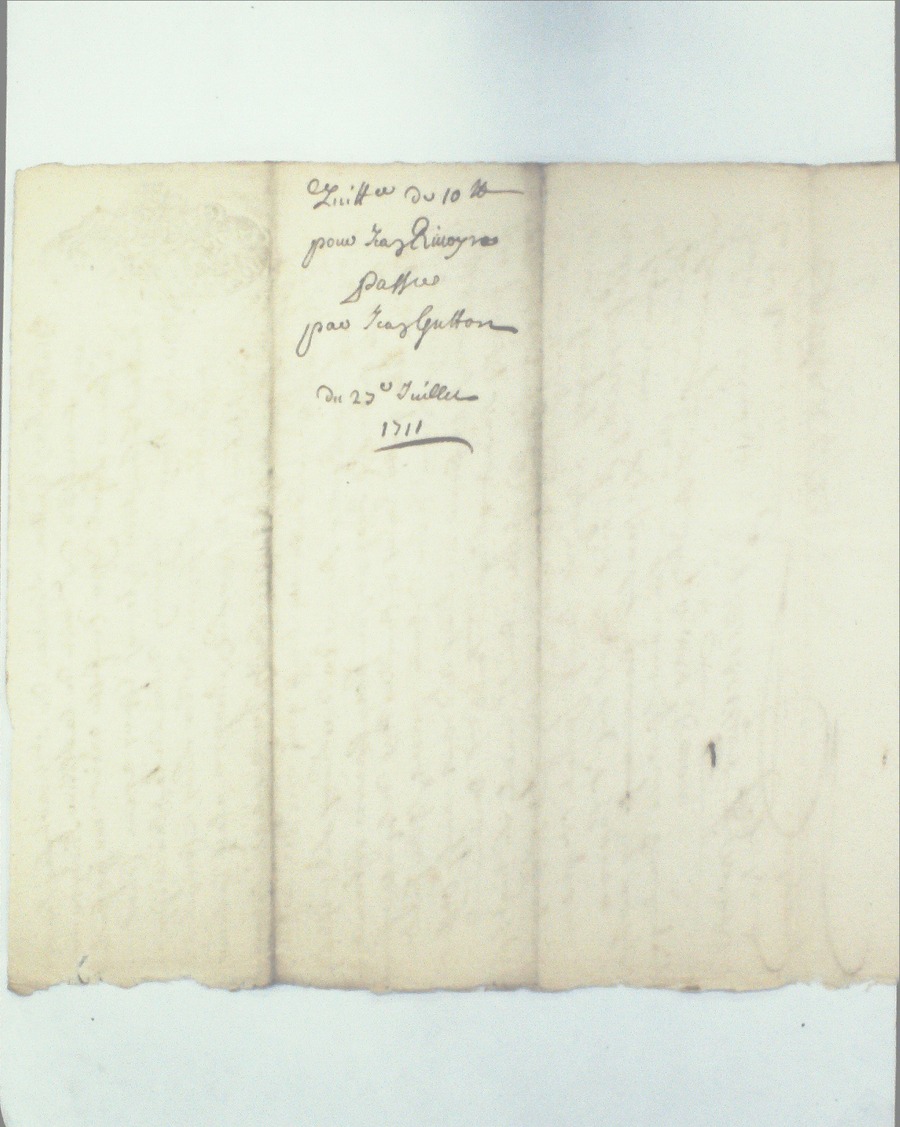 Quittce de 10 ₶
pour Jean Rimoyre
passee
par Jean Gutton
du 27e Juillet
1711